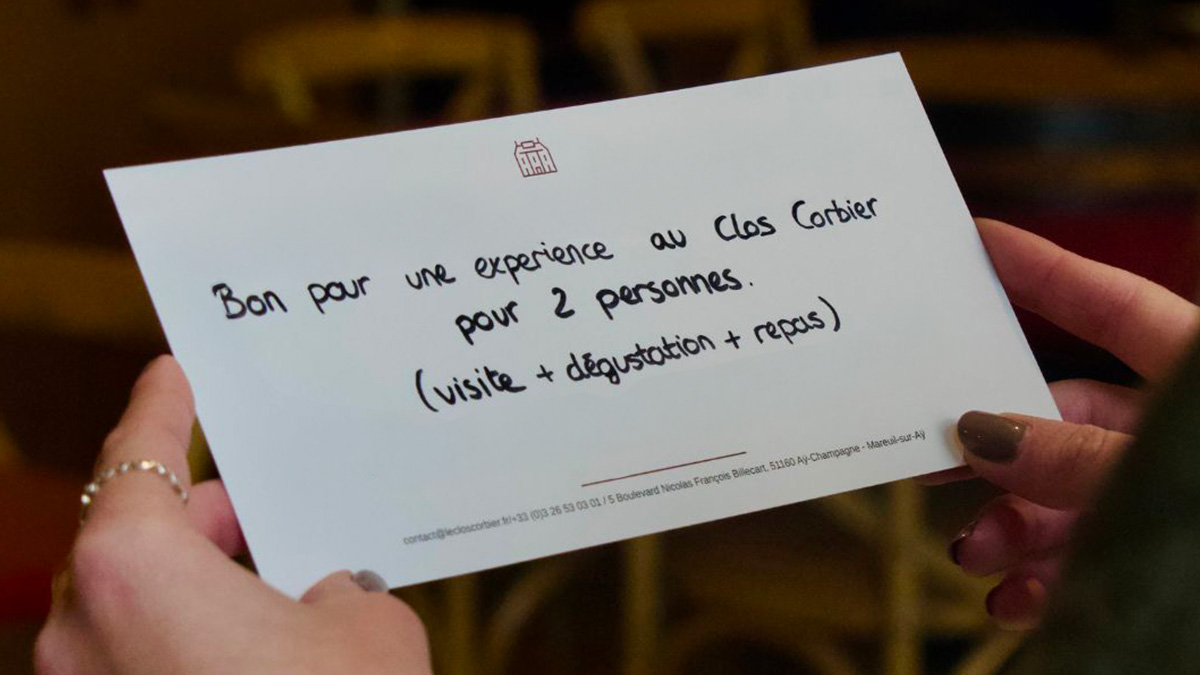 Bon pour une experience au Clos Corbier
pour 2 personnes.
(visite + dégustation + repas)
contact@lecloscorbier.fr/+33 (0)3 26 53 03 01 / 5 Boulevard Nicolas François Billecart, 51160 Aÿ-Champagne - Mareuil-sur-Aÿ